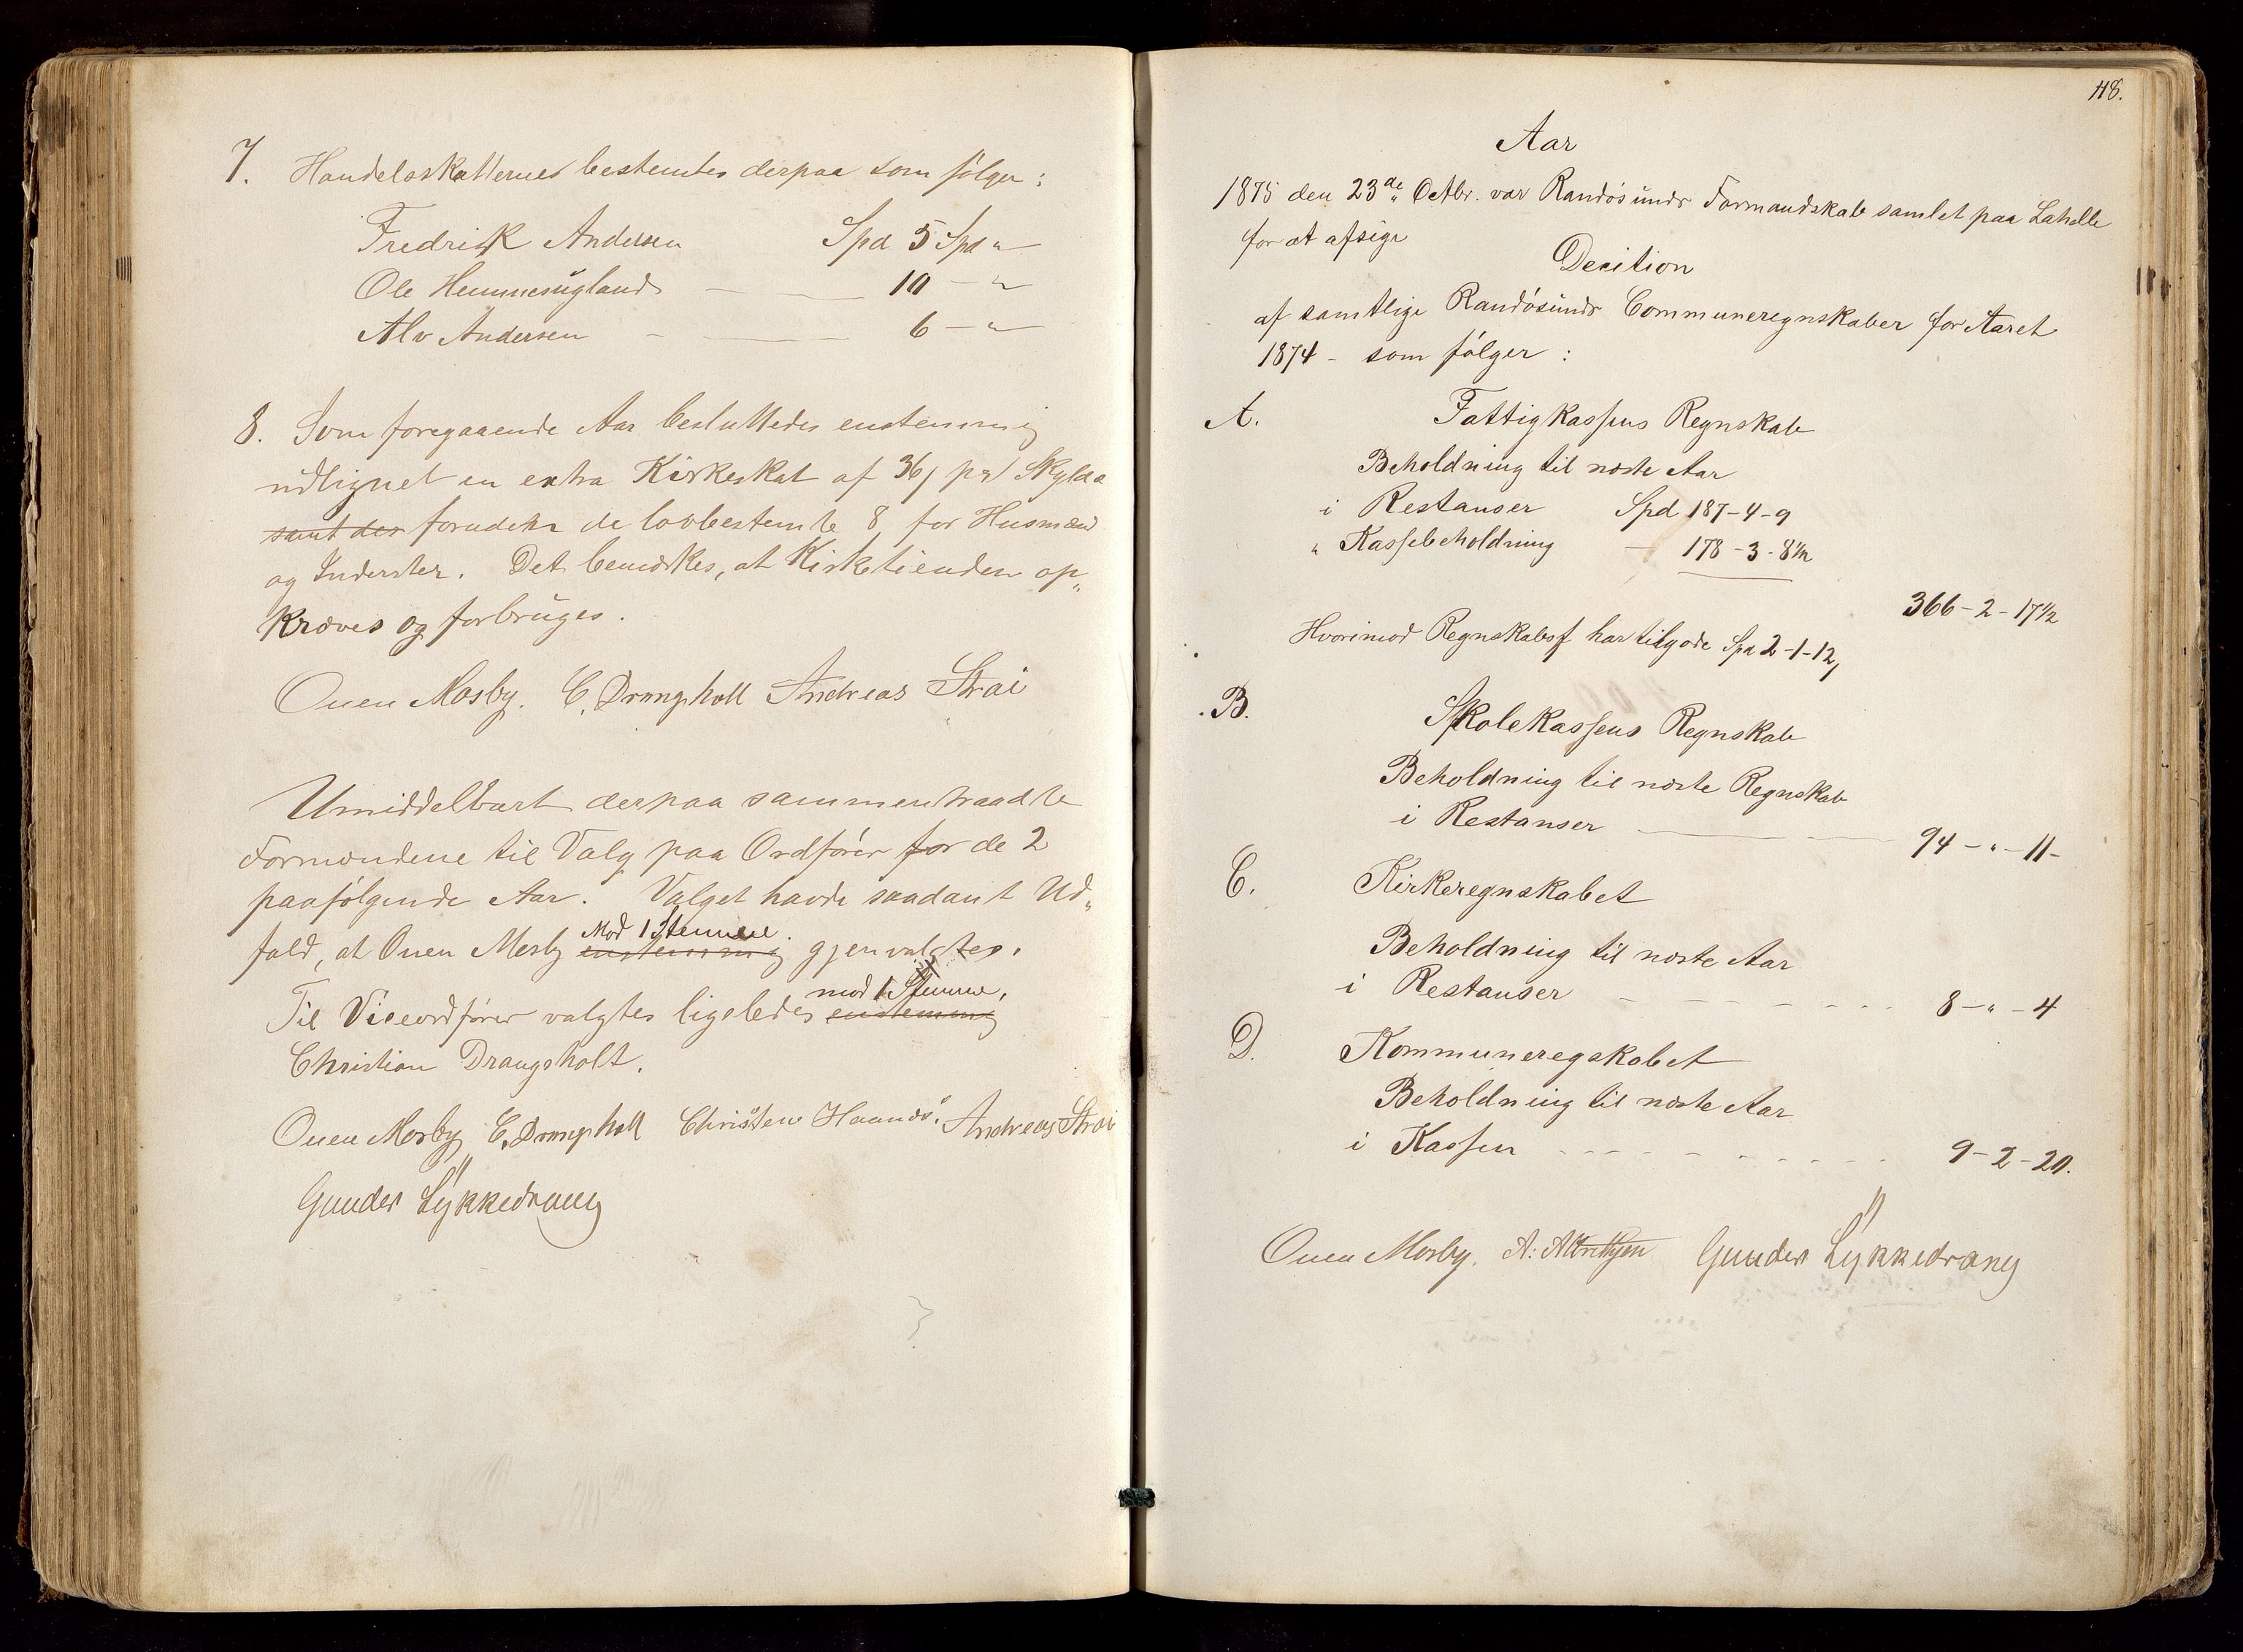 7. Handelsskatternes bestemtes derpaa som følger:
Fredrik Andersen Spd 5 Spd "
Ole Hemmesugland — 10 — "
Alv Andersen — 6 — "
8. Som foregaaende Aar besluttedes enstemmig
udlignet en extra Kirkeskat af 36 pr Skyldd
samt der foruden de lovbestemte 8 for Husmænd
og Inderster. Det bemærkes, at Kirketienden op„
kræves og forbruges.
Ouen Mosby. C. Drangsholt Andreas Strai
Umiddelbart derpaa sammentraadte
Formændene til Valg paa Ordfører for de 2
paafølgende Aar. Valget havde saadant Ud„
Mod 1 Stemme.
fald, at Ouen Mosby enstemmig gjenvalgtes.
mod 1 Stemme,
Til Viceordfører valgtes ligeledes enstemmig
Christian Drangsholt.
Ouen Mosby C. Drangsholt Christen Haanæs. Andreas Strai
Gunder Lykkedrang
118.
Aar
1875 den 23de Octbr. var Randøsunds Formandskab samlet paa Lahelle
for at afsige
Decition
af samtlige Randøsunds Communeregnskaber for Aaret
1874 - som følger:
A. Fattigkassens Regnskab
Beholdning til næste Aar
i Restanser Spd 187-4-9
" Kassebeholdning — 178-3-8½
366-2-17½
Hvorimod Regnskabsf har tilgode Spd 2-1-12,
B. Skolekassens Regnskab
Beholdning til næste Regnskab
i Restanser — 94-"-11-
C. Kirkeregnskabet
Beholdning til næste Aar
i Restanser - - - 8-"-4
D. Kommuneregskabet
Beholdning til næste Aar
i Kassen - - - 9-2-20.
Ouen Mosby. A. Albretsen Gunder Lykkedrang